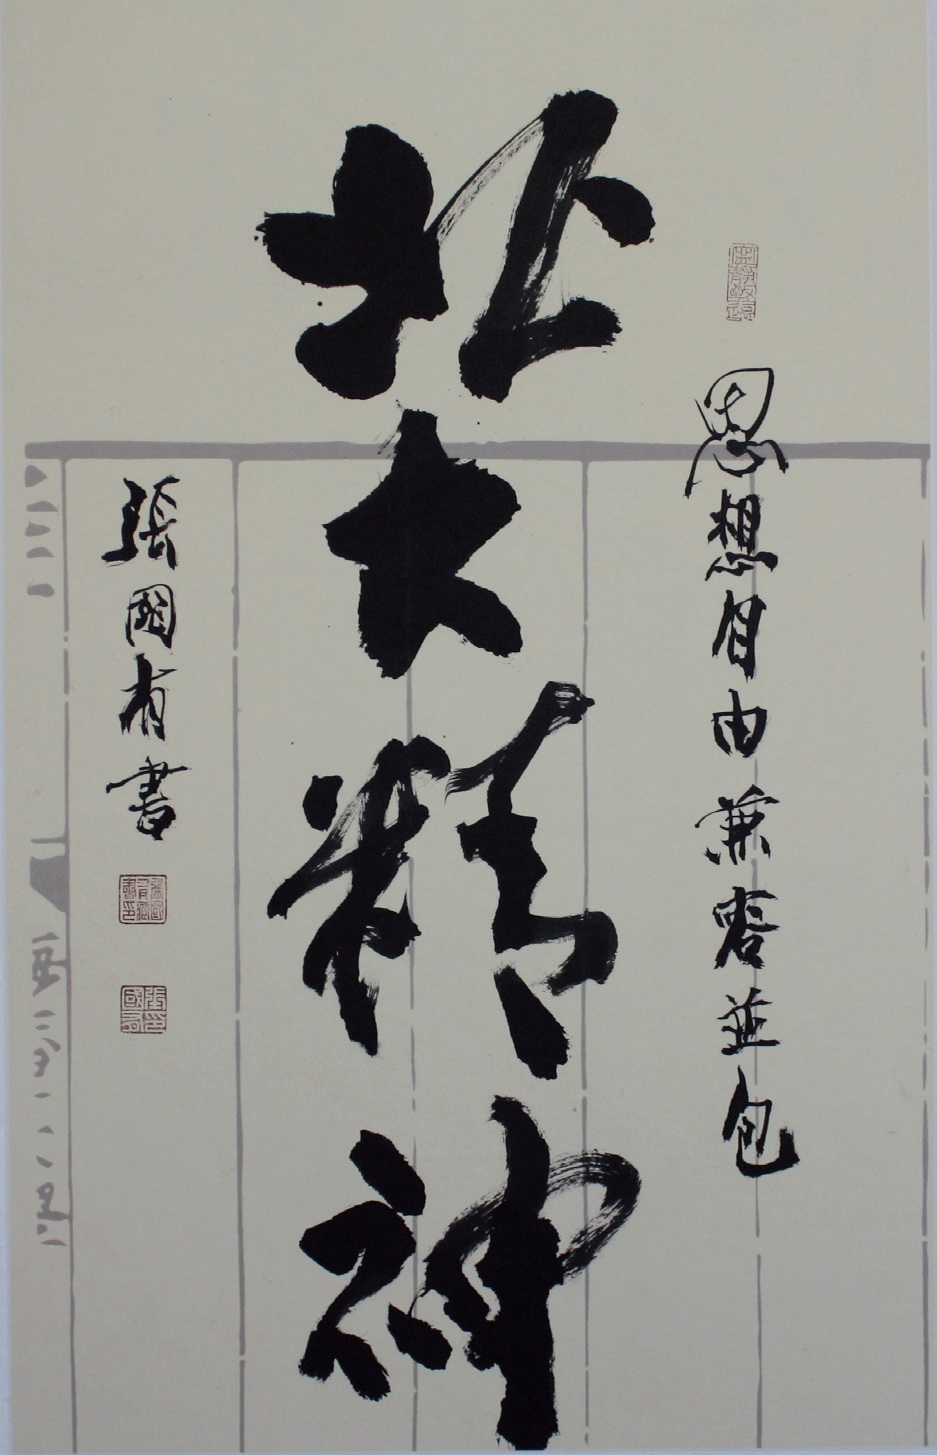 思想自由兼容並包
北大精神
張國有書